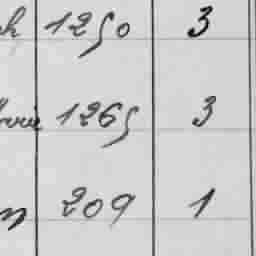 h 1250 3
1265 3
n 209 1